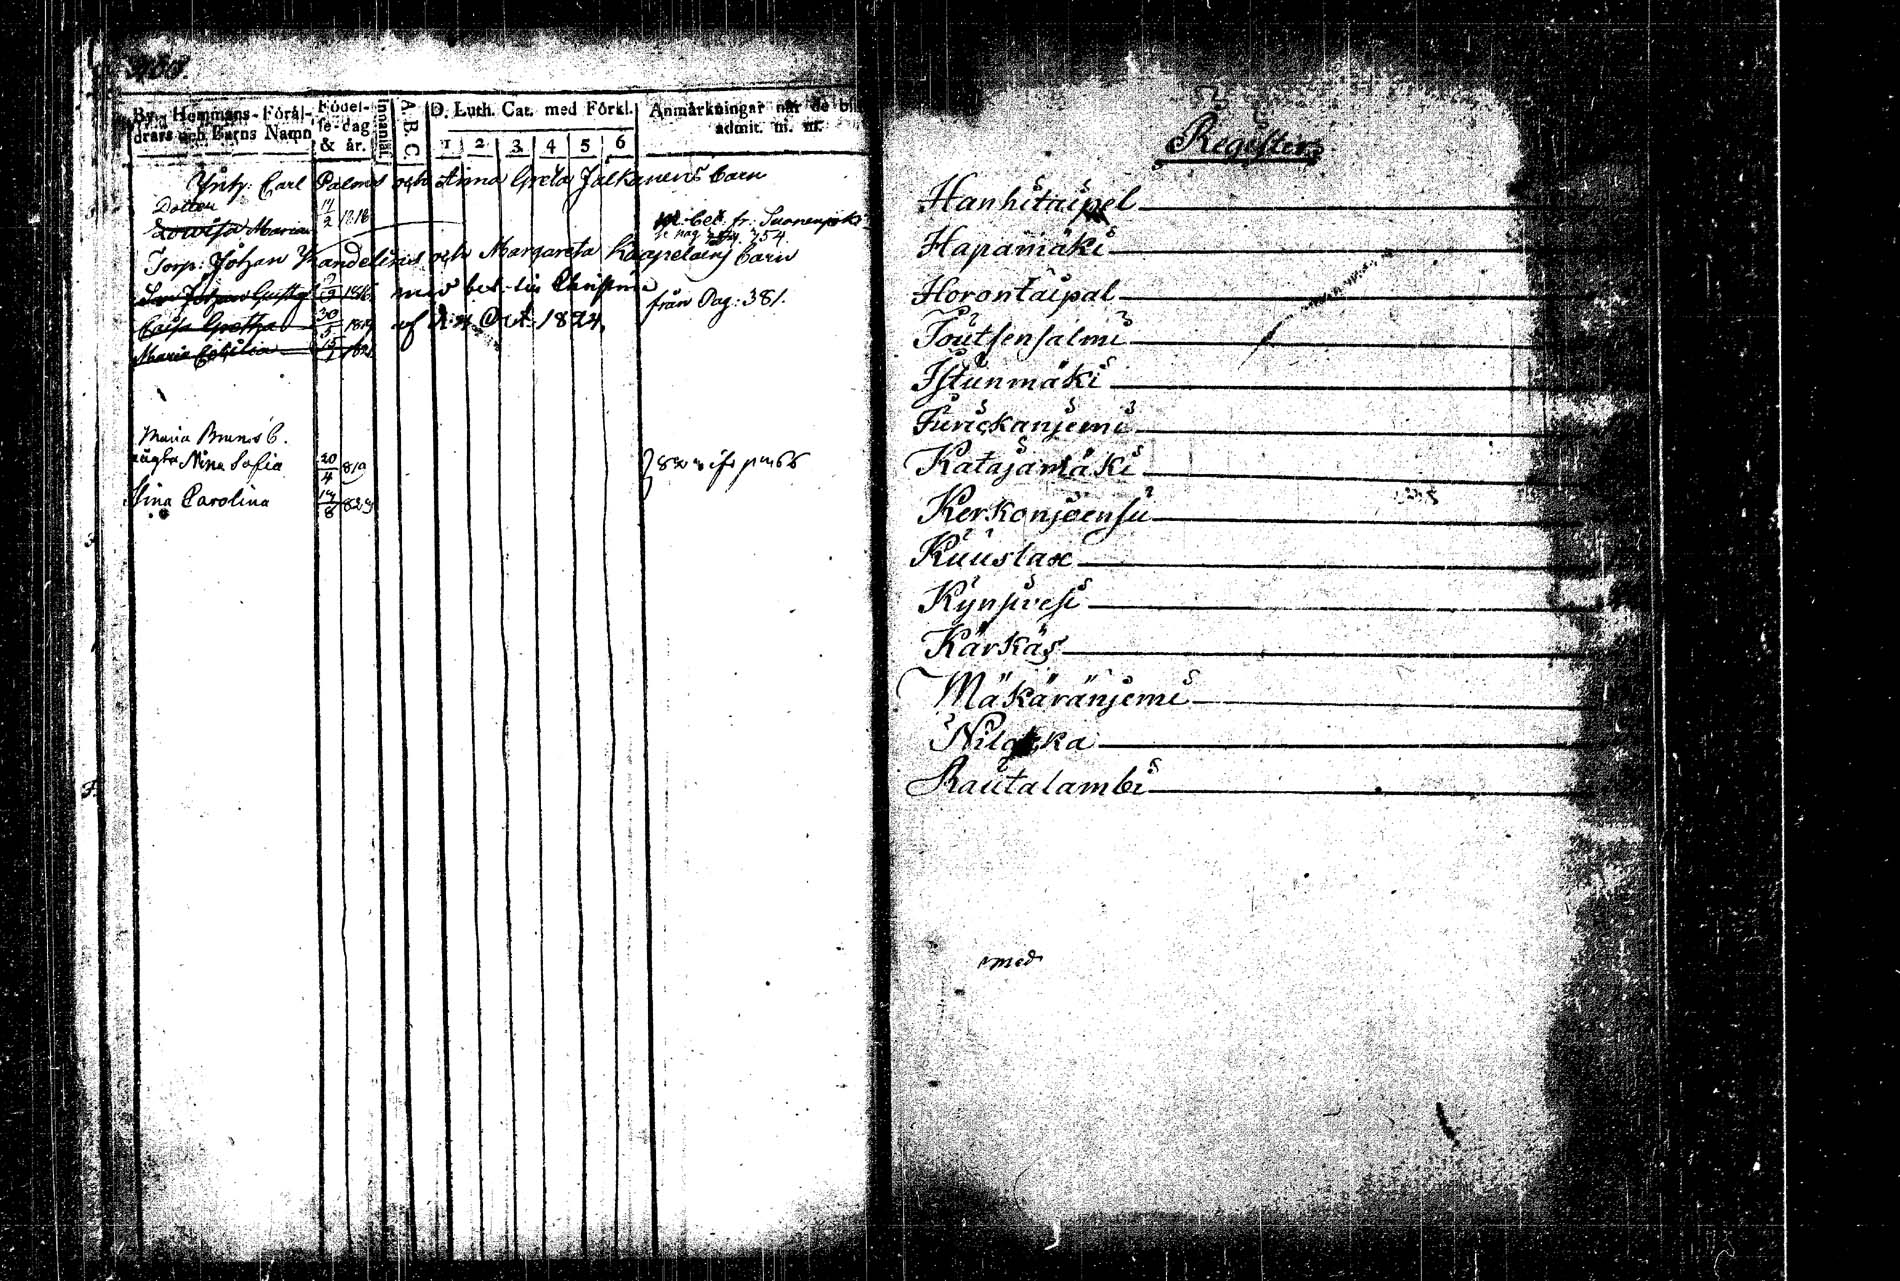 By, Hemmans- Föräl-
drars och Barns Namn
Födel-
se-dag
& år.
Innanläs.
A. B. C
D. Luth. Cat. med Förkl.
1 2 3 4 5 6
Anmärkningar när de bli
admit. m. m.
Inh: Carl Palmos och Anna Greta Jalkanens Barn
Dotter
Lowisa Maria 17/2 1818
se pag 354
Torp: Johan Wandelinus och Margareta Kaapelains Barn
Johan Gustaf 1816 med bet. Christina
från Pag: 381.
Caisa Gretha 30/5 1819 af d. Oct. 1824
Maria Cecilia 15/1
Maria Brunos b.
Nina Sofia 20/4 819
Stina Carolina 17/8 823
Register
Hanhitaipal
Hapamäki
Horontaipal
Toutsensalmi
Istunmäki
Jurickanjemi
Katajamäki
Kerkonjoensu
Kuuslax
Kynsivesi
Kärkäs
Mäkäränjemi
Nilakka
Rautalambi
med